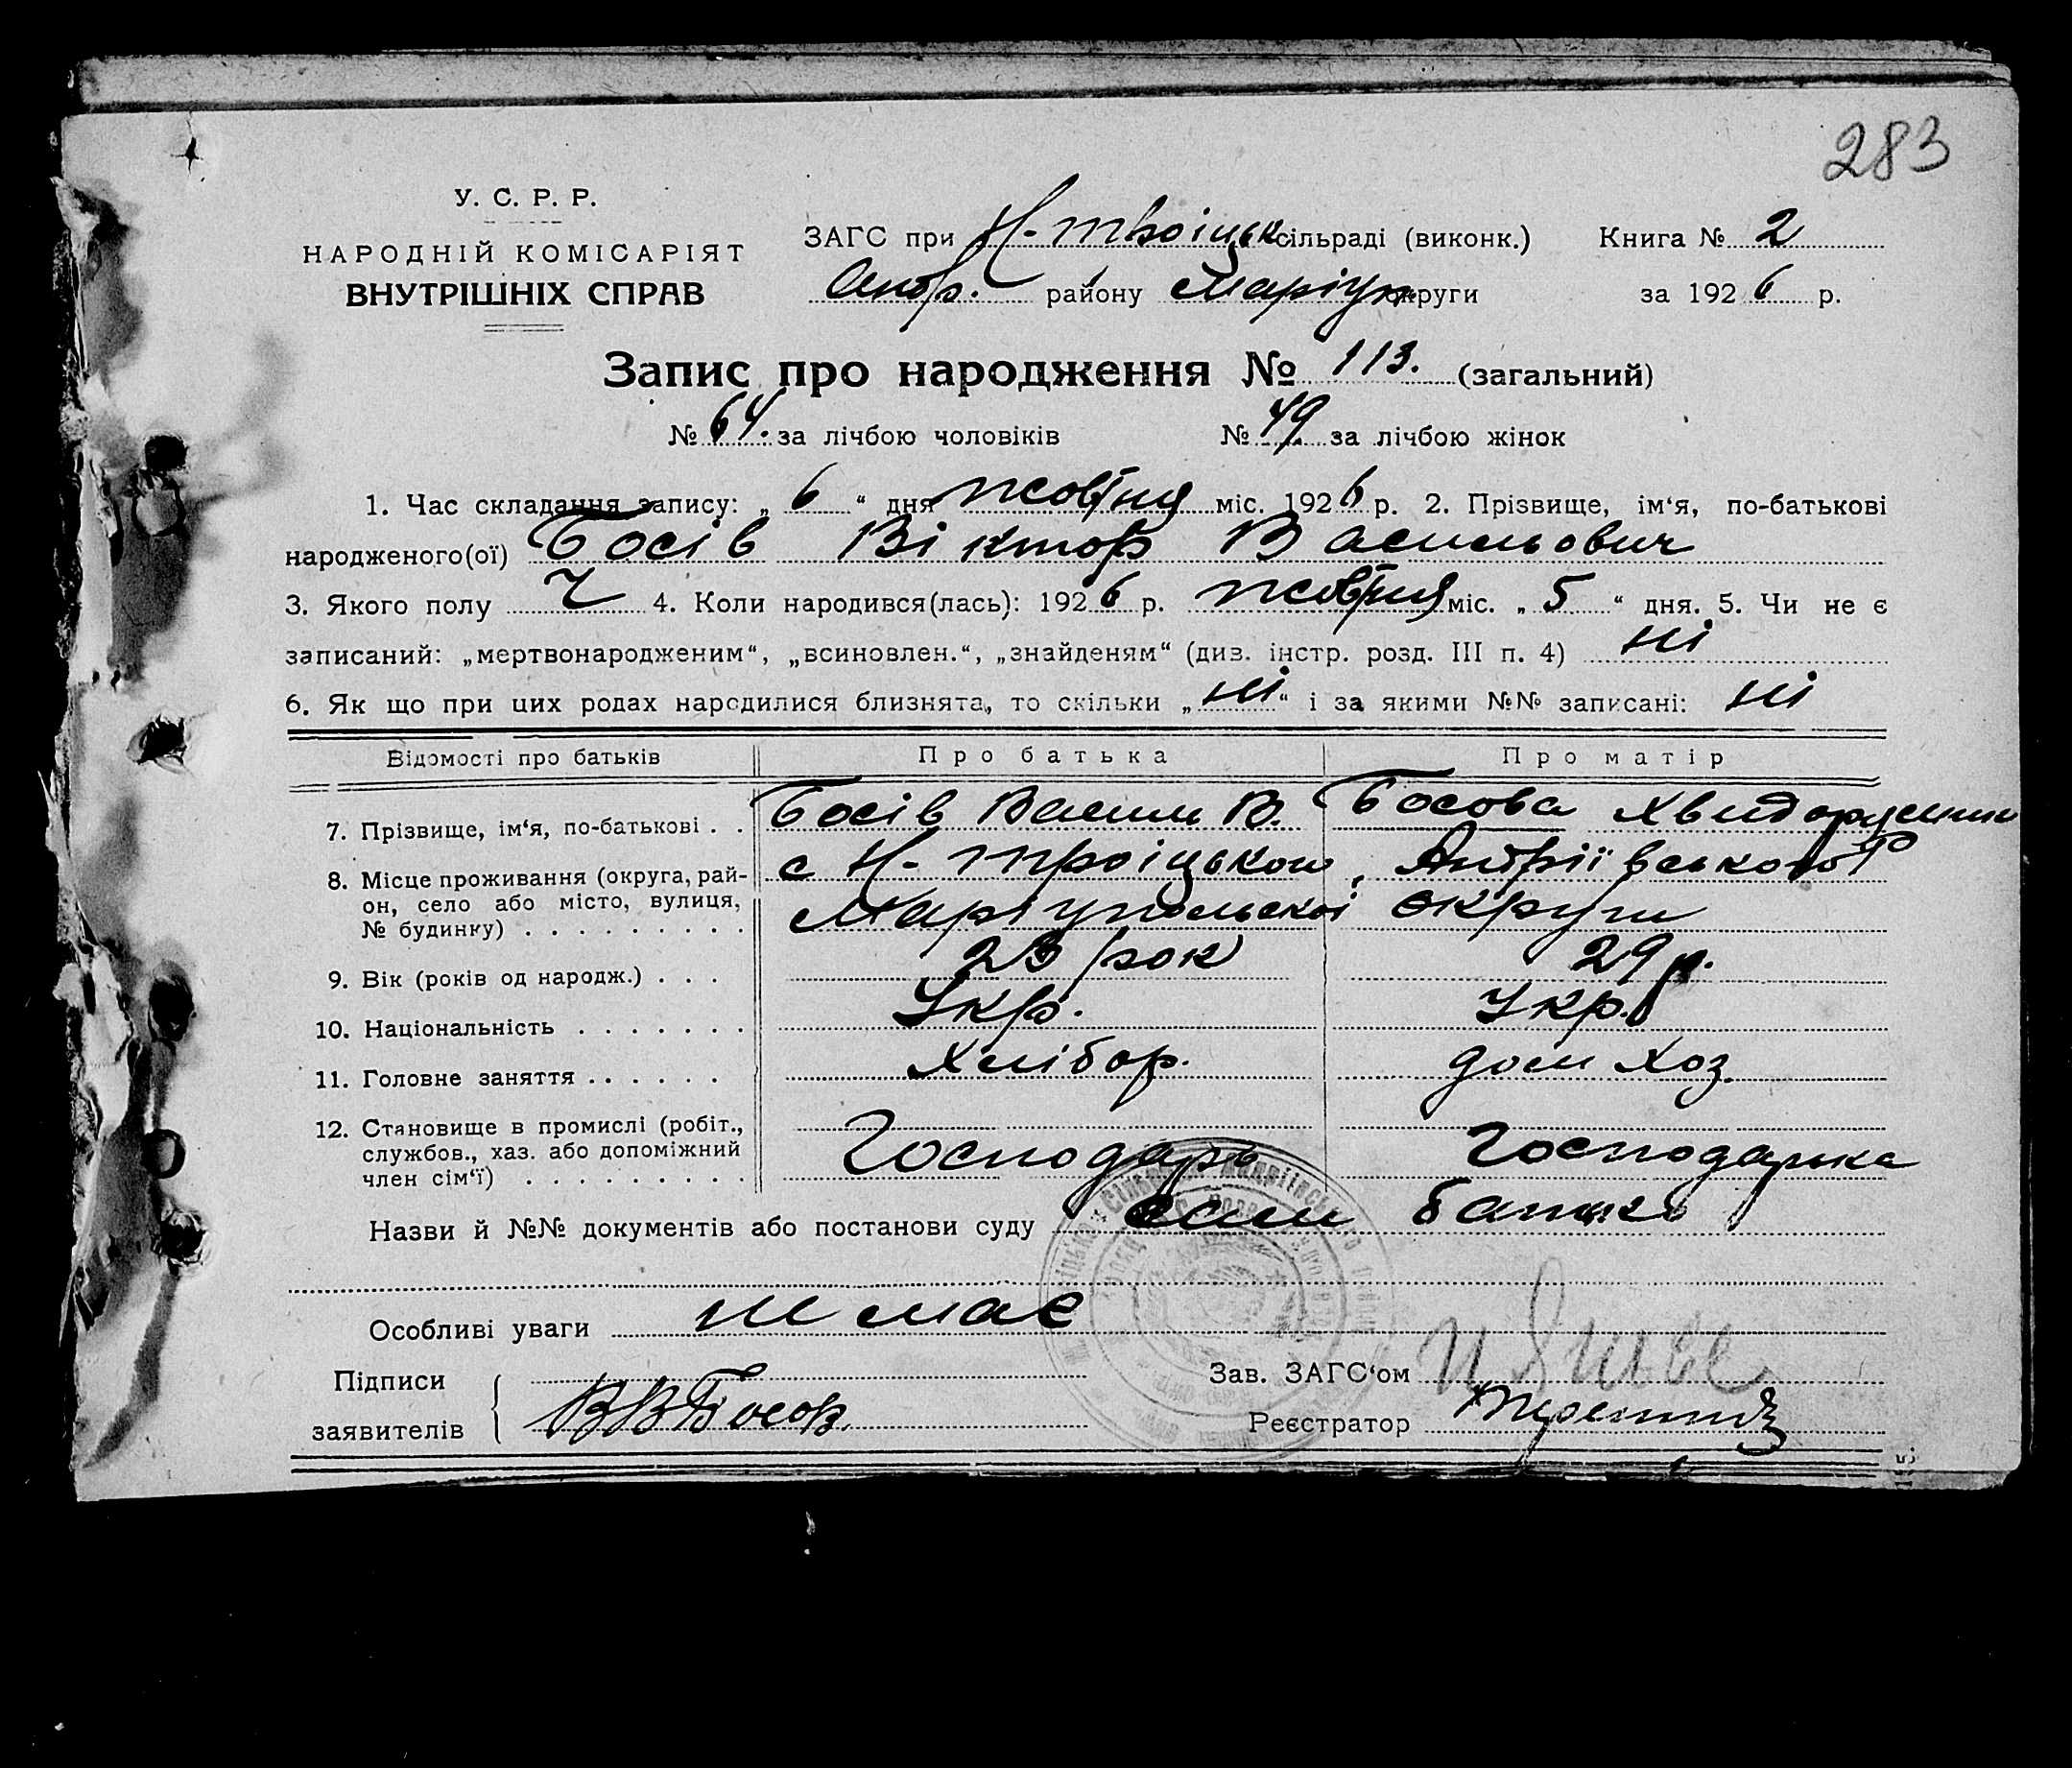 283
У. С. Р. Р.
НАРОДНІЙ КОМІСАРІЯТ
ВНУТРІШНІХ СПРАВ
ЗАГС при Н-троіцьк сільраді (виконк.) Книга № 2
Андр. району Маріуп округи за 1926 р.
Запис про народження № 113. (загальний)
№ 64. за лічбою чоловіків № 49 за лічбою жінок
1. Час складання запису: „ 6 “ дня жовтня міс. 1926 р. 2. Прізвище, ім‘я, по-батькові
народженого(ої) Босів Віктор Васильович
3. Якого полу Ч 4. Коли народився(лась): 1926 р. жовтня міс. „ 5 “ дня. 5. Чи не є
записаний: „мертвонародженим“, „всиновлен.“, „знайденям“ (див. інстр. розд. III п. 4) ні
6. Як що при цих родах народилися близнята, то скільки „ ні “ і за якими №№ записані: ні
Відомості про батьків Про батька Про матір
7. Прізвище, ім‘я, по-батькові . . Босів Василь В. Босова
8. Місце проживання (округа, рай-
он, село або місто, вулиця,
№ будинку) . . . . . . . . .
с Н-троіцьком, Андріївського р
Маріупольскоі округи
9. Вік (років од народж.) . . . 23 рок 29 р.
10. Національність . . . . . . . Укр. Укр.
11. Головне заняття . . . . . . Хлібор. дом хоз.
12. Становище в промислі (робіт.,
службов., хаз. або допоміжний
член сім‘ї) . . . . . . . . .
Господарь Господарька
Назви й №№ документів або постанови суду сам батько
Особливі уваги не має
Підписи
заявителів
ВВБосов.
Зав. ЗАГС‘ом
Реєстратор